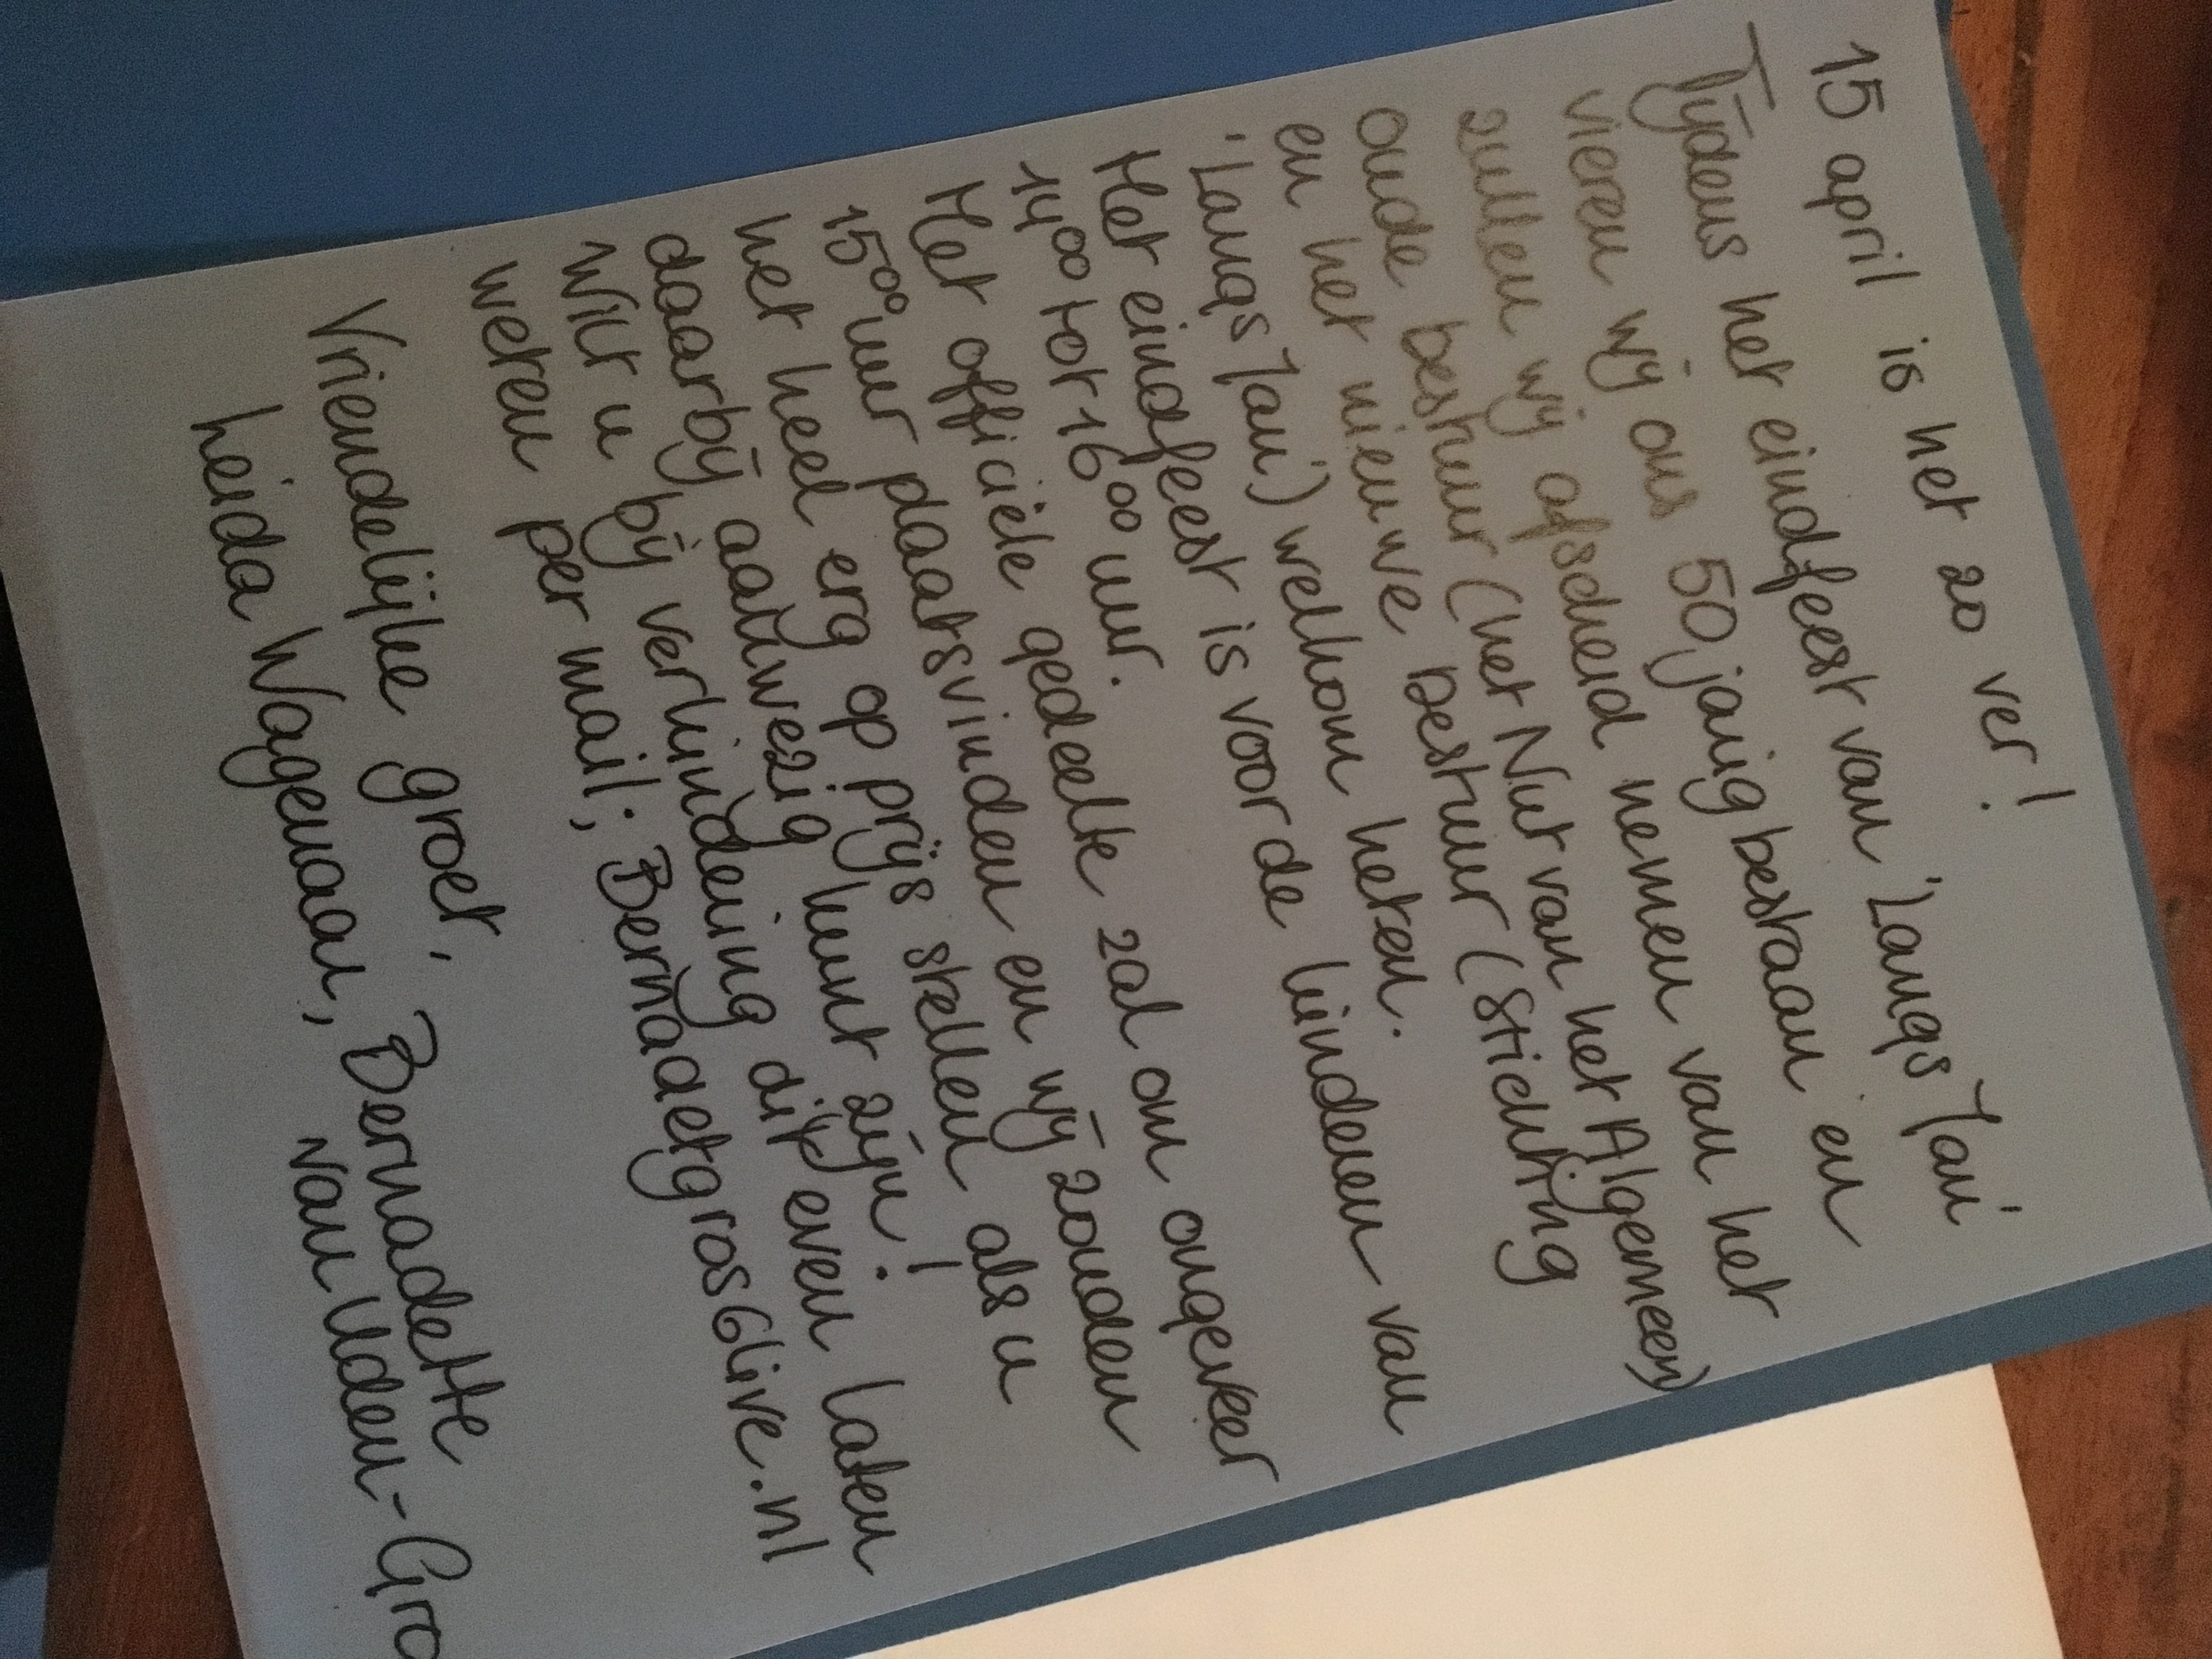 15 april is het zo ver!
Tijdens het eindfeest van 'Langs Jan'
vieren wij ons 50 jarig bestaan en
zullen wij afscheid nemen van het
oude bestuur (het Nut van het Algemeen)
en het nieuwe bestuur (Stichting
'Langs Jan') welkom heten.
Het eindfeest is voor de kinderen van
14⁰⁰ tot 16⁰⁰ uur.
Het officiële gedeelte zal om ongeveer
15⁰⁰ uur plaatsvinden en wij zouden
het heel erg op prijs stellen als u
daarbij aanwezig kunt zijn!
Wilt u bij verhindering dit even laten
weten per mail; Bernadetgros6live.nl
Vriendelijke groet, Bernadette
van Uden-Gro
heida Wagenaar,